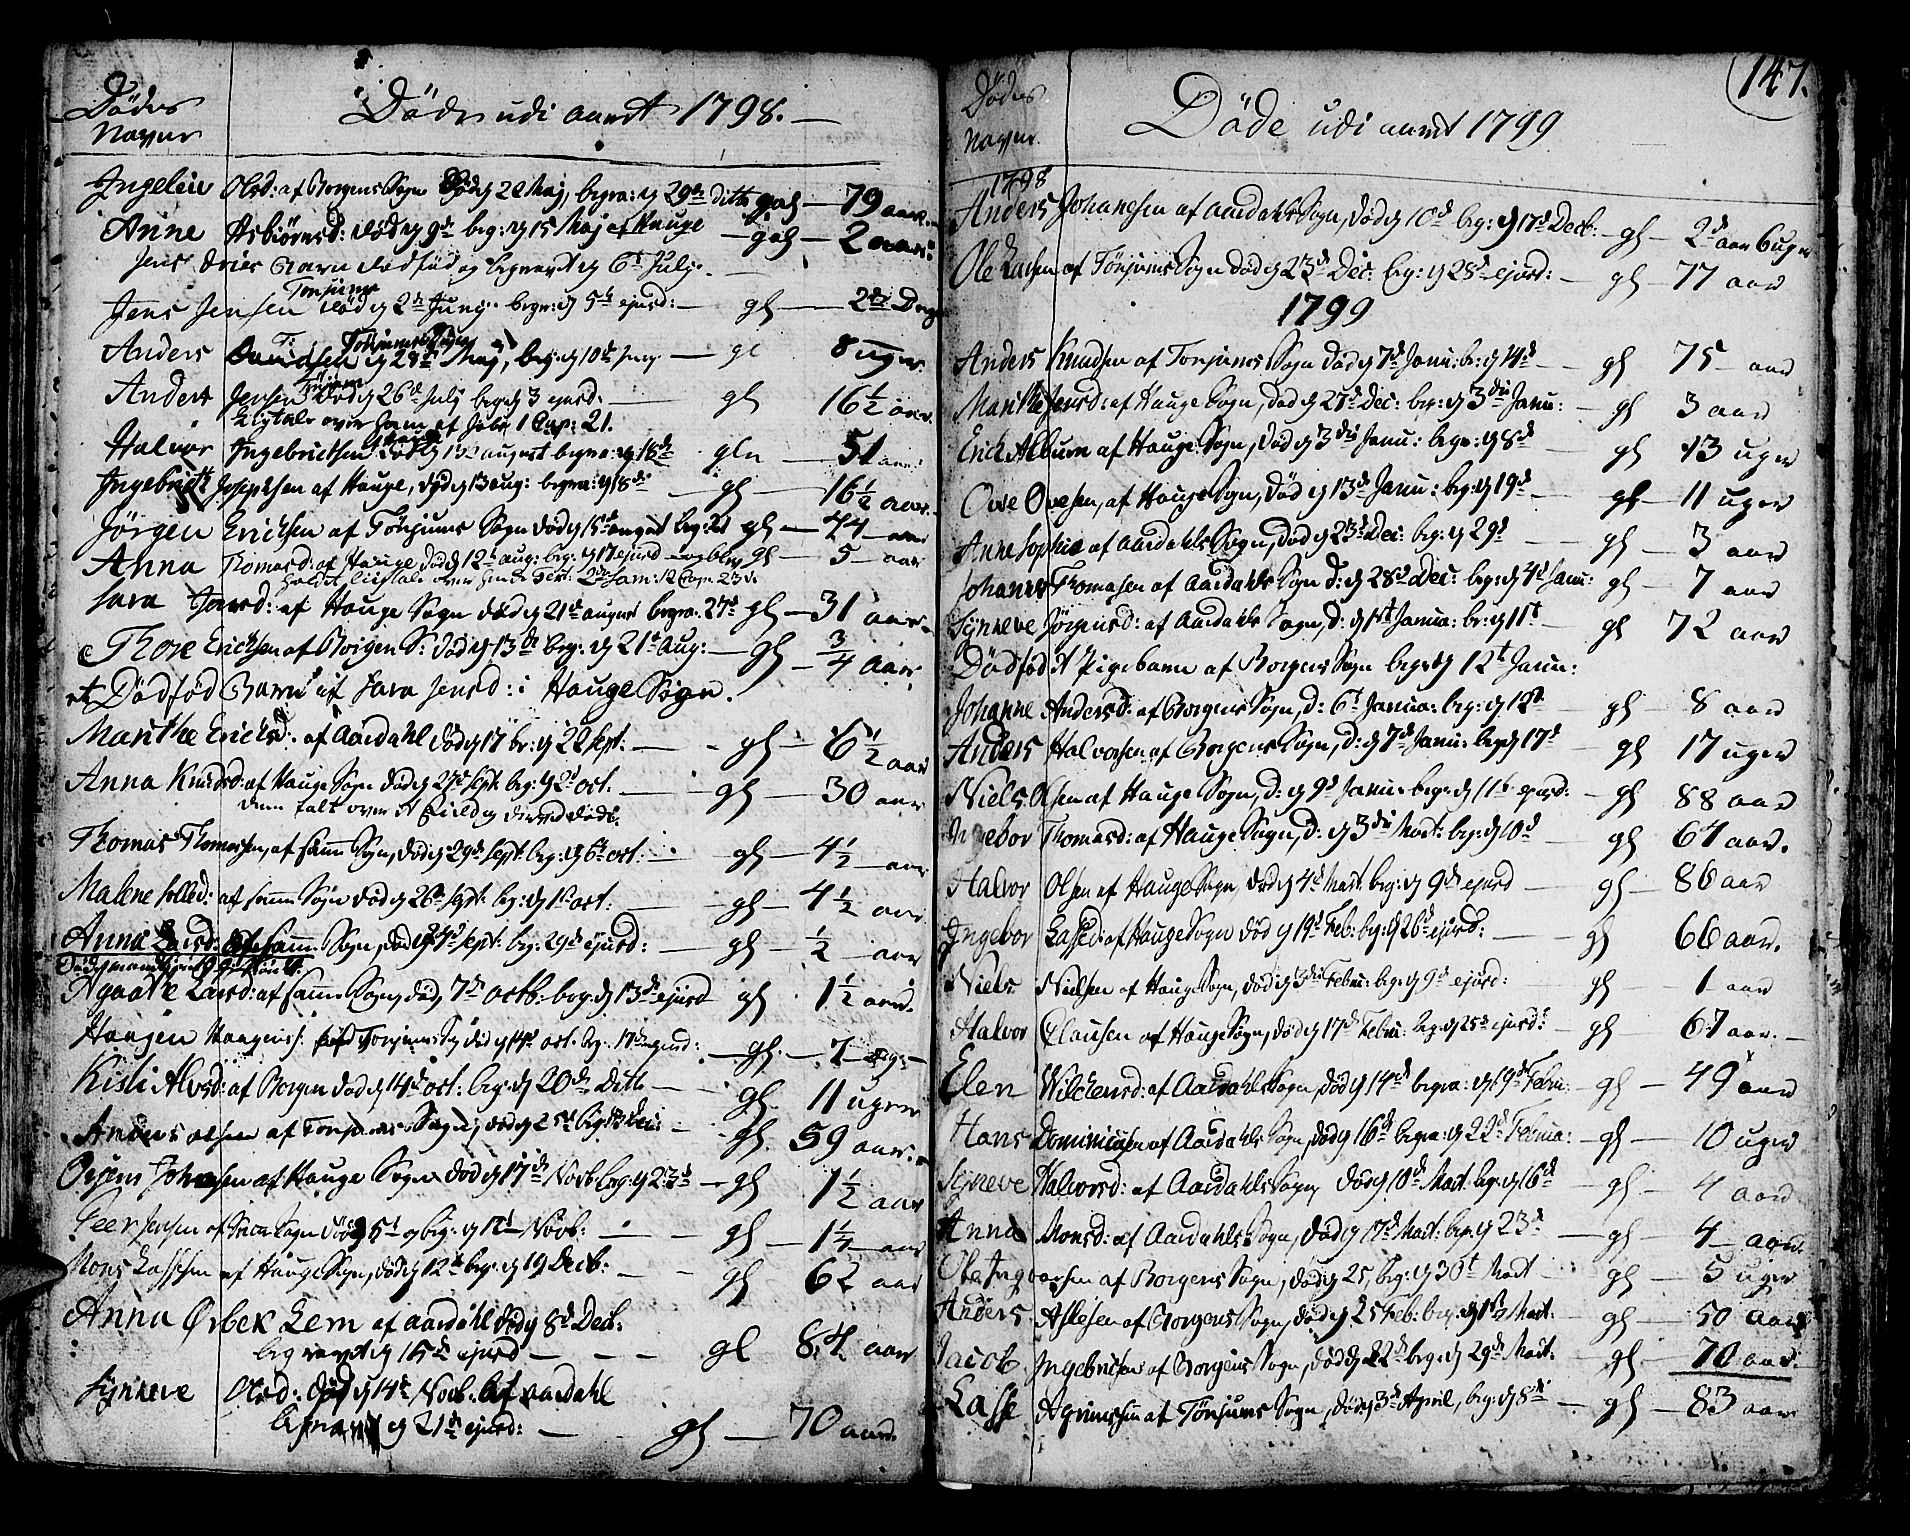 Dödes
Navne
Döde udi aaret 1798.
Ingelein Olsd: af Borgens Sogn Död d 22 Maj, begra: d 29de ditto gal 79 aar
Anne Asbiörnsd: död d 9d beg: d 15 Maj af Hauge gal 2 aar
Barn dödfød og begravet d 6t Julj.
Tønjums
Jens Jensen död d 2d Junj begr: d 5t ejusd: gl 2de Dage
Anders d 28d Maj, beg: d 10d Junj gl 8 uger
Tönjum
Anders Jensen död d 26d Julj begr d 3 ejusd. gl 16 1/2 aar
Ligtale over ham af Jobs 1 Cap: 21.
Halvor Ingebrictsen död d 13 august begra: d 18de gl 51 aar
Ingebrict Josephsen af Hauge, död d 13 aug: begra: d 18de gl 16 1/2 aar
Jörgen Ericksen af Tönjums Sogn död d 15d august beg: 21 gl 74 aar
Anna Thomasd: af Hauge död d 12t aug: beg: d 17 ejusd gl 5 aar
holdt ligtale over 2den Sam: 12 Cap. 23 v.
Sara Jensd: af Hauge Sogn död d 21d august begra. 27d gl 31 aar
Thore Ericksen af Borgen S: död d 13de beg: d 21t aug: gl 3/4 aar
et Dödfød Barn af Sara Jensd: i Hauge Sogn.
Marithe Ericksd: af Aardahl död d 17 br: d 22 Sept: gl 6 1/2 aar
Anna Knudsd: af Hauge Sogn död d 27d Sept beg: d 2d oct. gl 30 aar
Thomas Thomassen, af samme Sogn, död d 29d Sept beg: d 6t oct: gl 4 1/2 aar
Malene af samme Sogn död d 26d Sept. beg: d 1t oct: gl 4 1/2 aar
Anna Larsd: af samme Sogn, död d 24d Sept: beg: 29d ejusd: gl 1/2 aar
Agaate Larsd: af samme Sogn, död, 7de octb: beg: d 13de ejusd gl 1 1/2 aar
Haagen Haagens: Tonjums Sogn död d 14d oct. beg. 17d ejusd: gl 7
Kisti Alvsd: af Borgen död d 14d oct: beg: d 20de Ditto gl 11 uger
Anders olsen af Tonjums Sogn, död d 25d beg: gl 59 aar
Johansen af Hauge Sogn död d 17de Novb beg: d 23d gl 1 1/2 aar
Peer Jensen af Sogn död d 5t og beg: d 12t Novb: gl 1 1/4 aar
Mons Lassesen af Hauge Sogn, död d 12d beg: d 19 Decb: gl 62 aar
Anna Ørbek Lem af aardahl död d 8d Decb:
begravet d 15d ejusd gl 84 aar
Synneve Olsd: död d 14d Novb. af aardahl
begravet d 21de ejusd: gl 70 aar
147.
Dödes
Navne
Döde udi aaret 1799
1798
Anders Johanesen af aardahls Sogn, död d 10d beg: d 17d Decb: gl 2d aar 6 uger
Ole Lassen af Tönjums Sogn död d 23d Dec: beg: d 28d ejusd: gl 77 aar
1799
Anders Knudsen af Tonjums Sogn död d 7d Janu: br: d 14d gl 75 aar
Marithe Jensd: af Hauge Sogn, död d 27d Dec: br: d 3die Janu: gl 3 aar
Erick Album af Hauge Sogn, död d 3die Janu: begr: d 8d gl 13 uger
Owe Owesen, af Hauge Sogn, död d 13d Janu: beg: d 19d gl 11 uger
Anne Sophie af aardahls Sogn, död d 23d Dec: beg: d 29d gl 3 aar
Johannes Thomasen af aardahls Sogn d: d 28d Dec: beg: d 4d Janu: gl 7 aar
Synneve Jörgensd: af Aardahls Sogn, d: d 1t Janua: br: d 11t gl 72 aar
Dödfød et Pigebarn af Borgens Sogn begr: d 12t Janu:
Johanne Andersd: af Borgens Sogn, d: 6t Janua: beg: d 12t gl 8 aar
Anders Halvorsen af Borgens Sogn, d: d 7d Janu: beg: d 17d gl 17 uger
Niels Olsen af Hauge Sogn, d: d 9d Janu: beg: d 11t ejusd: gl 88 aar
Ingebor Thomasd: af Hauge Sogn, d: d 3die Mart: beg: d 10d gl 64 aar.
Halvor Olsen af Hauge Sogn, död d 4d Mart. beg: d 9d ejusd gl 86 aar
Ingebor Lassed: af Hauge Sogn död d 19d Feb: beg: d 26d ejusd: gl 66 aar.
Niels Nielsen af Hauge Sogn, död d 3die Febru: beg: d 9d ejusd: gl 1 aar
Halvor Clausen af Hauge Sogn, död d 17d Febru: beg: d 25d ejusd: gl 67 aar.
Elen Wilchensd: af Aardahls Sogn, död d 14d begra: d 19d Febru: gl 49 aar
Hans Dominicusen af Aardahls Sogn, död d 16d begra: d 22d Februa: gl 10 uger
Synneve Halvorsd: af Aardahls Sogn död d 10d Mart: beg: d 16d gl 4 aar
Anna Monsd: af Aardahls Sogn, död d 17d Mart: beg: d 23d gl 4 aar.
Ole Ingvarsen af Borgens Sogn, död d 25, beg: d 30t Mart gl 5 uger
Anders Aslesen af Borgens Sogn, död d 25 Feb: beg: d 1t Mart: gl 50 aar
Jacob Ingebricsen af Borgens Sogn, död d 22d beg: d 29d Mart: gl 70 aar.
Lasse Agrimssen af Tönjums Sogn, död d 3d April, beg: d 8d gl 83 aar